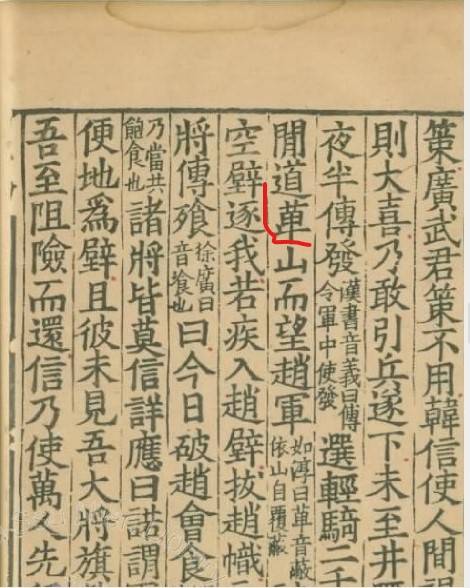 策廣武君策不用韓信使人間
則大喜乃敢引兵遂下未至井
夜半傳發漢書音義曰傳令軍中使發選輕騎二千
閒道萆山而望趙軍如淳曰萆音蔽依山自覆蔽
空壁逐我若疾入趙壁拔趙幟
將傳飱徐廣曰音飡也曰今日破趙會食
乃當共飽食也諸將皆莫信詳應曰諾謂
便地爲壁且彼未見吾大將旗
吾至阻險而還信乃使萬人先